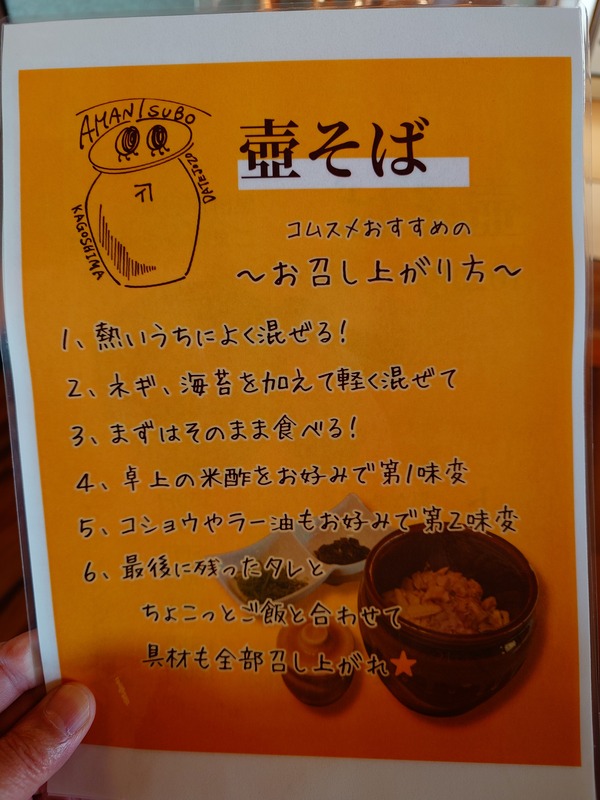 AMANTSUBO
DATEJIZO
KAGOSHIMA
壺そば
コムスメおすすめの
〜お召し上がり方〜
1、熱いうちによく混ぜる!
2、ネギ、海苔を加えて軽く混ぜて
3、まずはそのまま食べる!
4、卓上の米酢をお好みで第1味変
5、コショウやラー油もお好みで第2味変
6、最後に残ったタレと
ちょこっとご飯と合わせて
具材も全部召し上がれ★